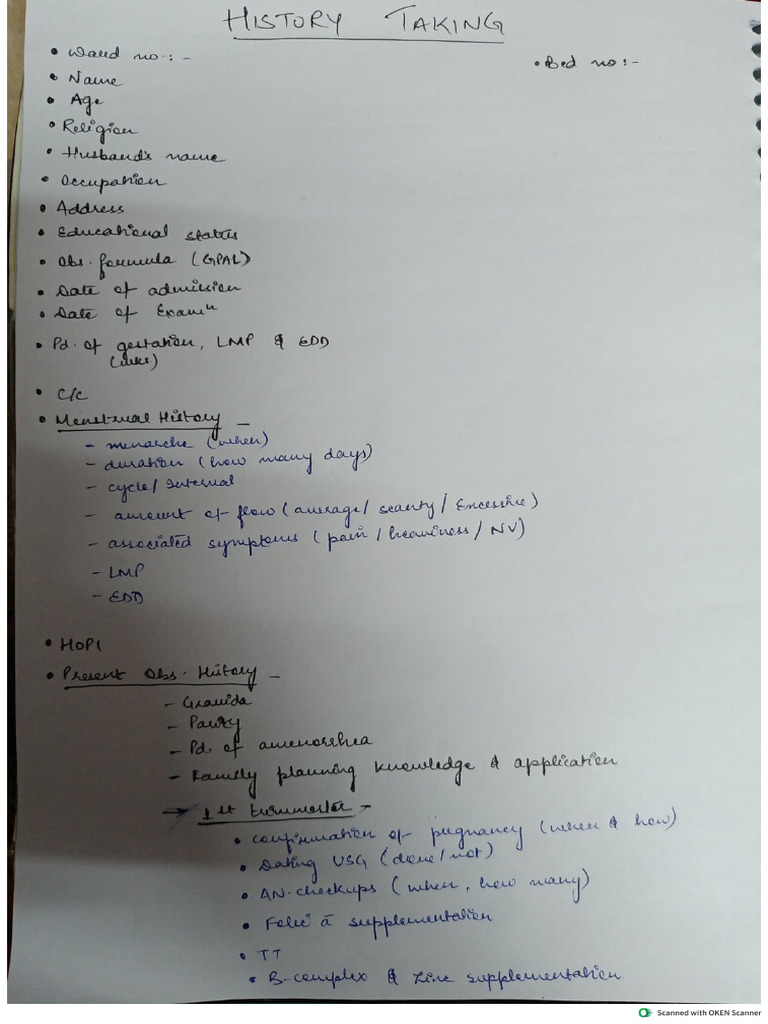 HISTORY TAKING
• Ward no:-
• Bed no:-
• Name
• Age
• Religion
• Husband's name
• Occupation
• Address
• Educational status
• Obs. formula (GPAL)
• Date of admission
• Date of Examⁿ
• Pd. of gestation, LMP & EDD
(wks)
• C/C
• Menstrual History -
- menarche (when)
- duration (how many days)
- cycle/Interval
- amount of flow (average/scanty/Excessive)
- associated symptoms (pain/heaviness/NV)
- LMP
- EDD
• HOPI
• Present Obs. History -
- Gravida
- Parity
- Pd. of amenorrhea
- Family planning knowledge & application
→ 1st trimester -
• confirmation of pregnancy (when & how)
• Dating USG (done/not)
• AN-checkups (when, how many)
• Folic a supplementation
• TT
• B-complex & Zinc supplementation
Scanned with OKEN Scanner